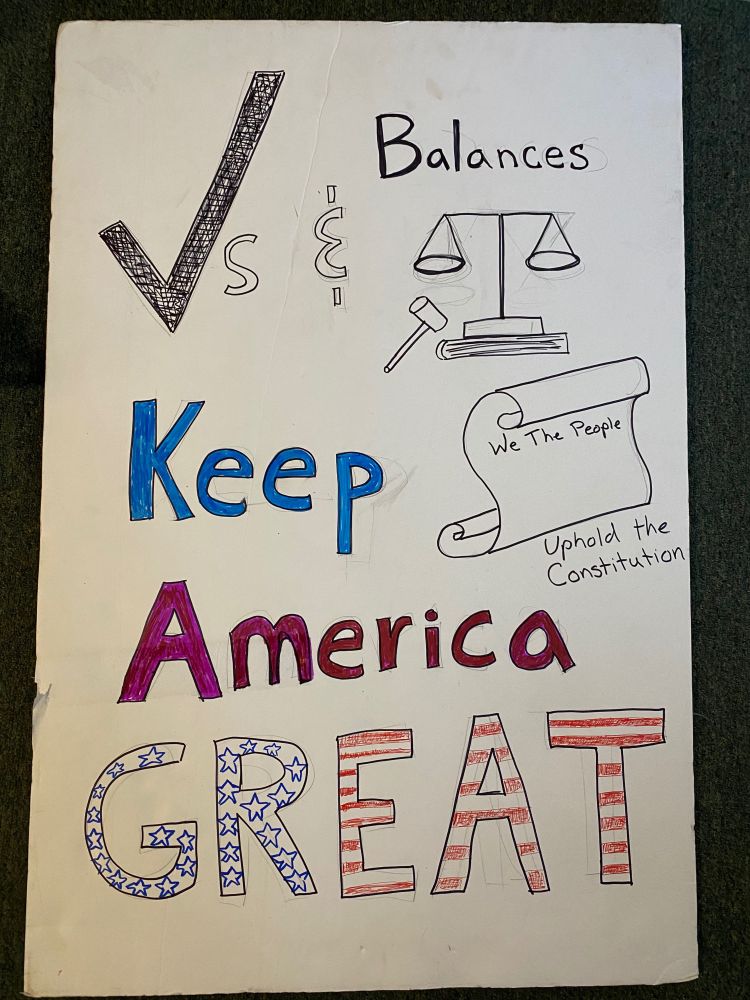 ✓s & Balances
Keep
We The People
Uphold the
Constitution
America
GREAT